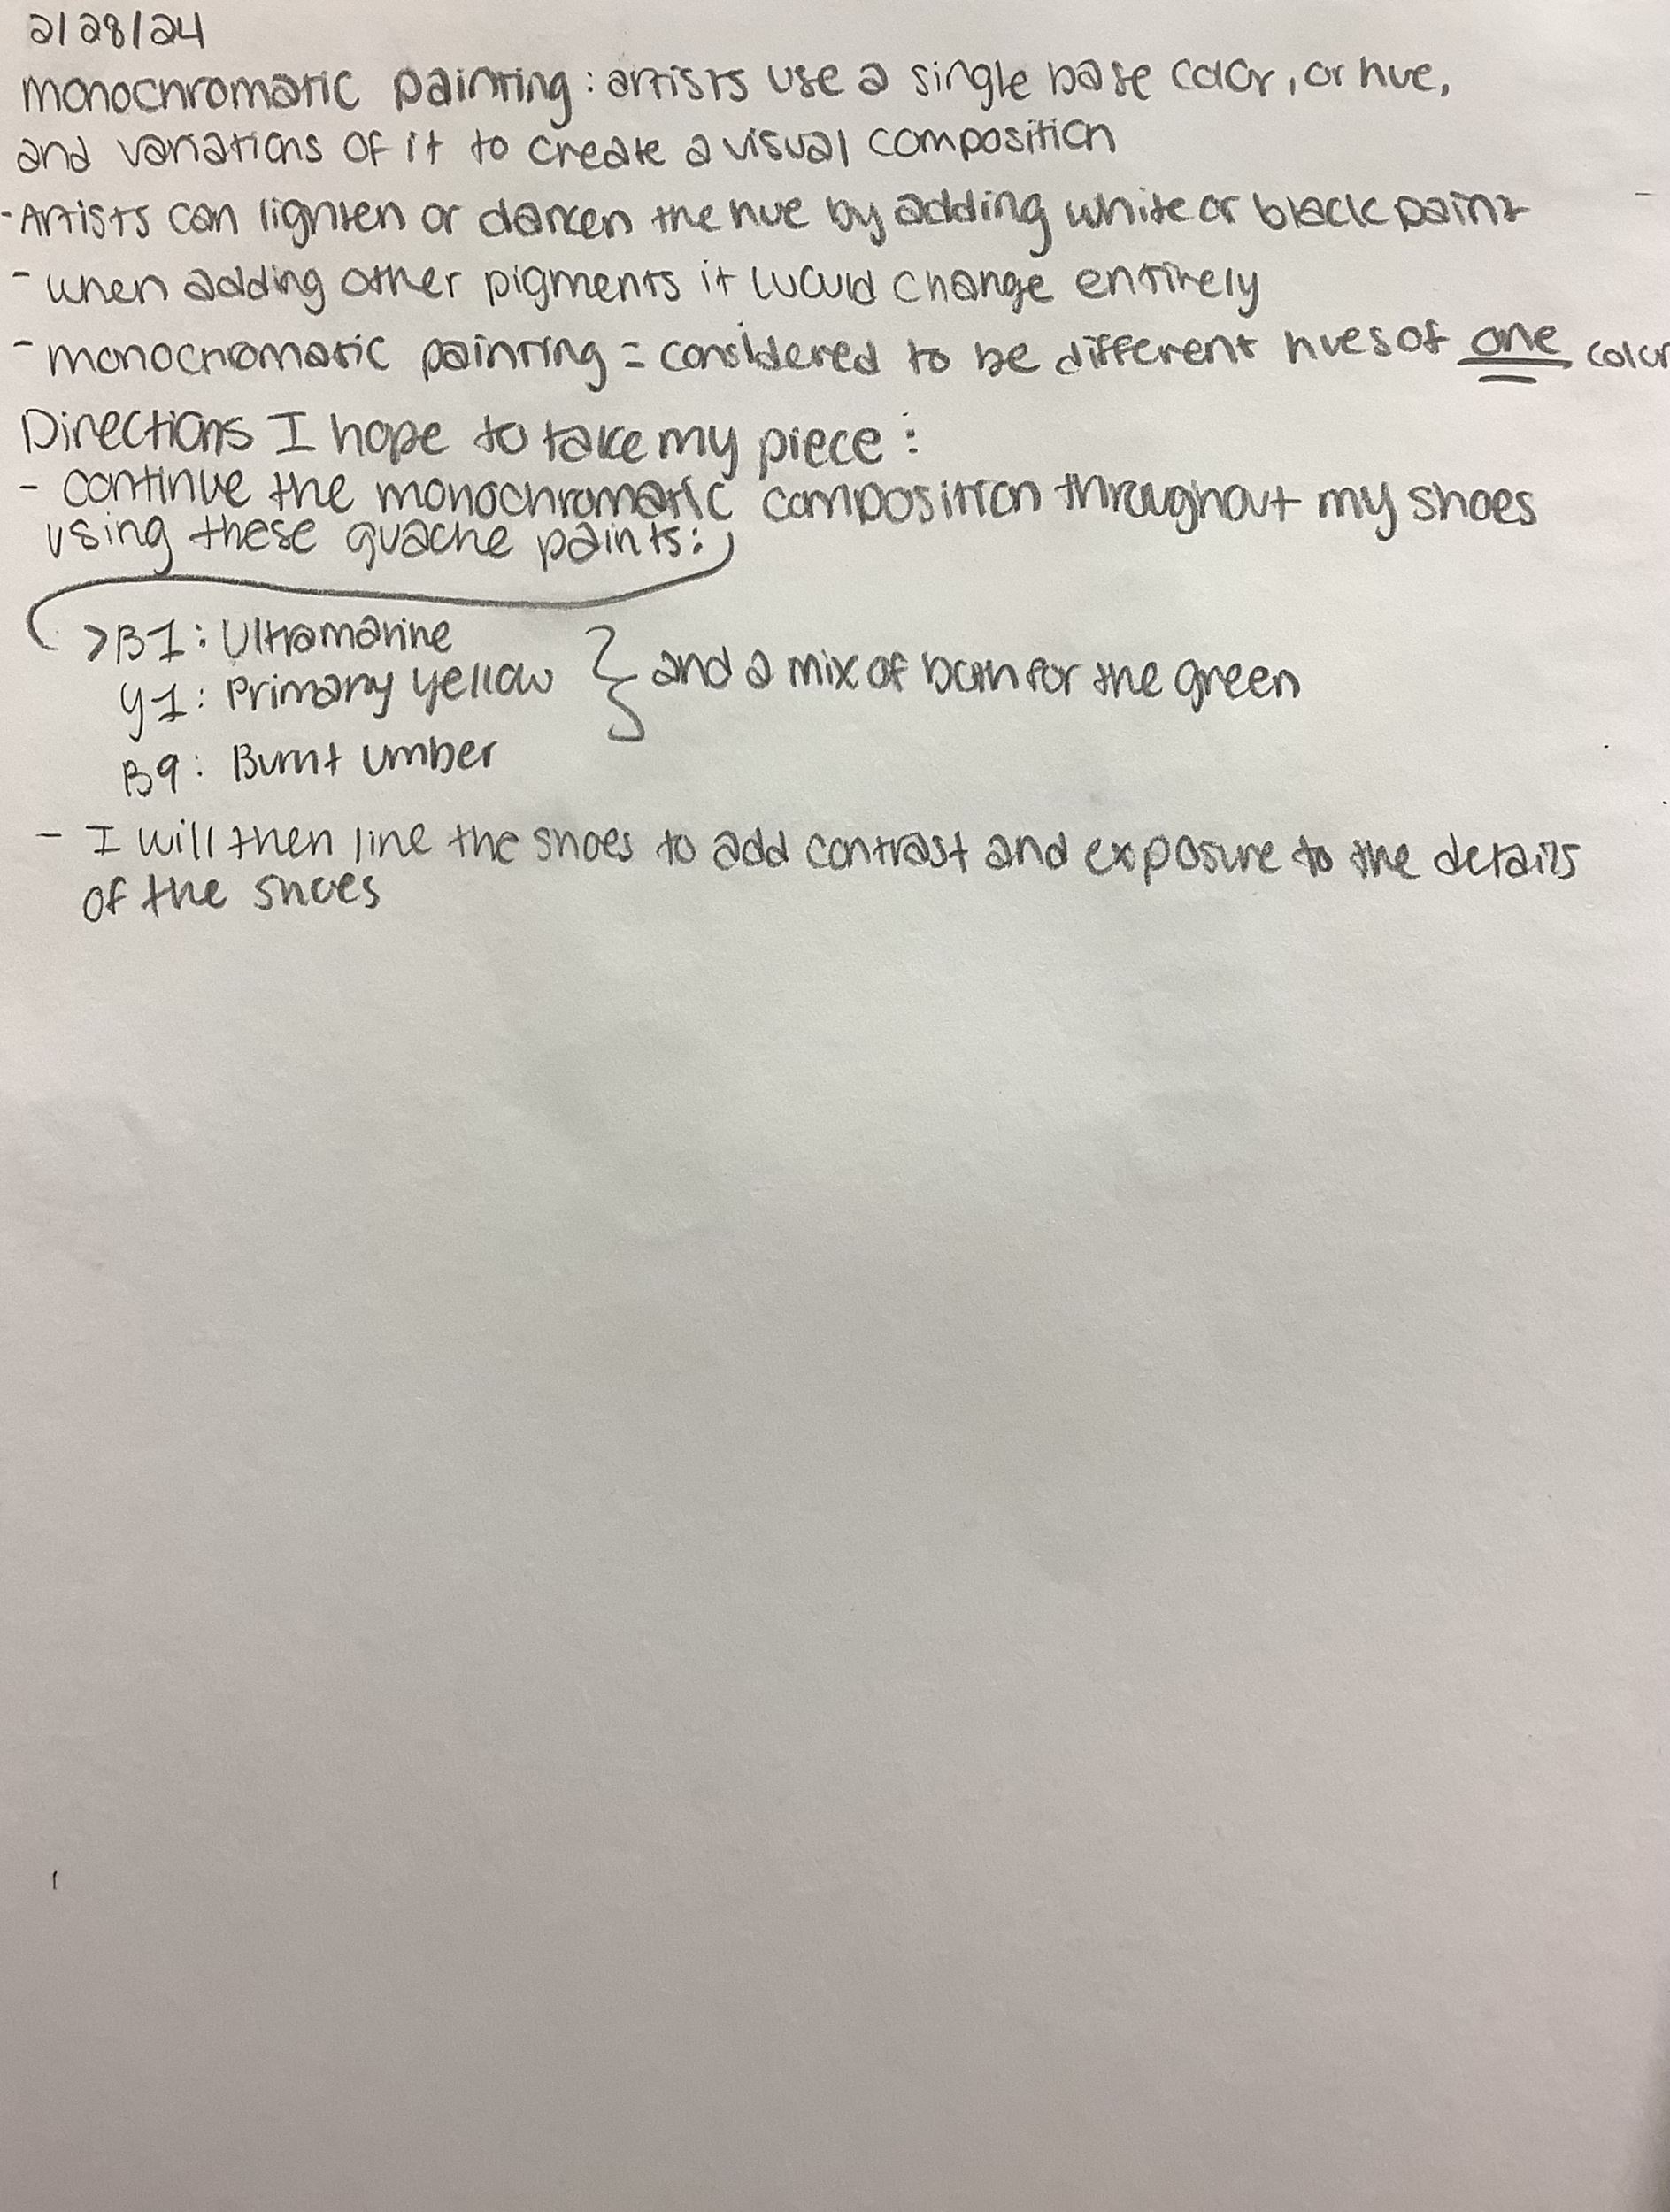 2/28/24
monochromatic painting: artists use a single base color, or hue,
and variations of it to create a visual composition
- Artists can lighten or darken the hue by adding white or black paint
- when adding other pigments it would change entirely
- monochromatic painting = considered to be different hues of one color
Directions I hope to take my piece:
- continue the monochromatic composition throughout my shoes
using these guache paints:
> B1: Ultramarine
Y1: Primary yellow } and a mix of both for the green
B9: Burnt umber
- I will then line the shoes to add contrast and exposure to the details
of the shoes